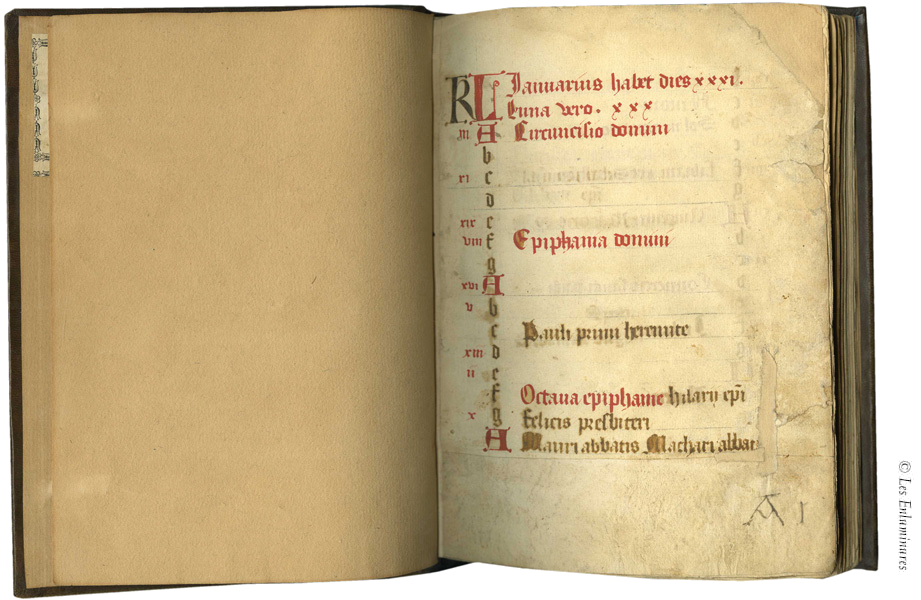 KL Ianuarius habet dies xxxi.
Luna vero. xxx
iii A Circumcisio domini
b
xi c
d
xix e
viii f Epiphania domini
g
xvi A
v b
c Pauli primi heremite
xiii d
ii e
f Octava epiphanie hilarii epi
x g Felicis presbiteri
A Mauri abbatis Macharii abbat
A 1
© Les Enluminures